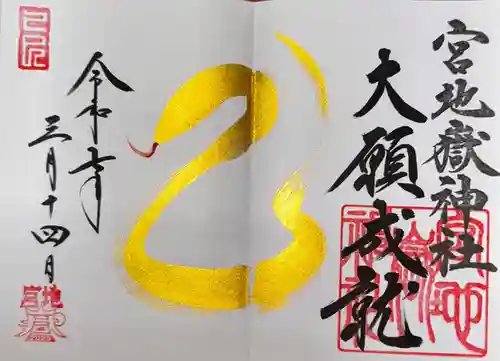 宮地嶽神社
大願成就
令和七年
三月十四日
宮地
嶽
2025